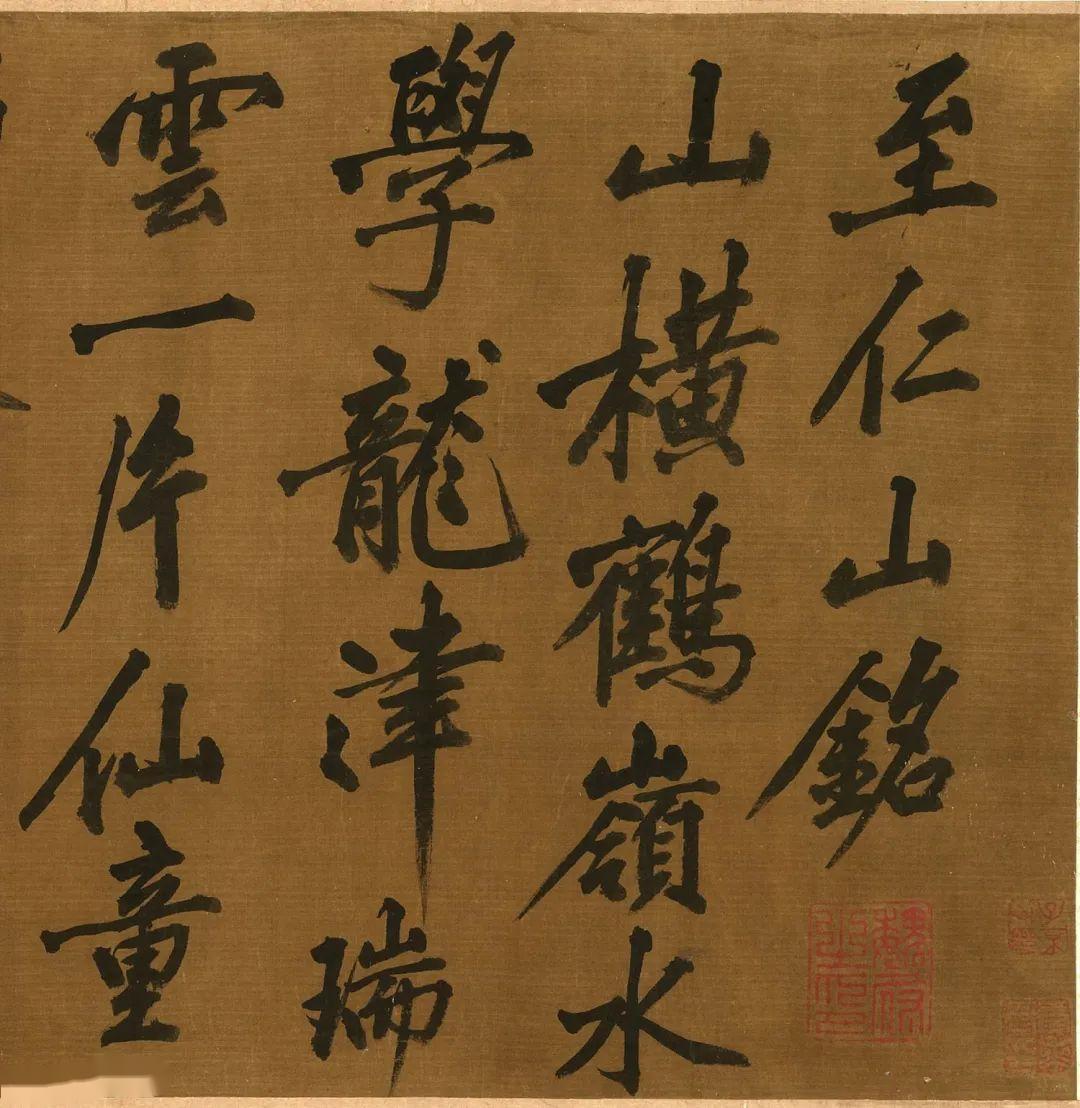 至仁山銘
山橫鶴嶺水
學龍津瑞
雲一片仙童